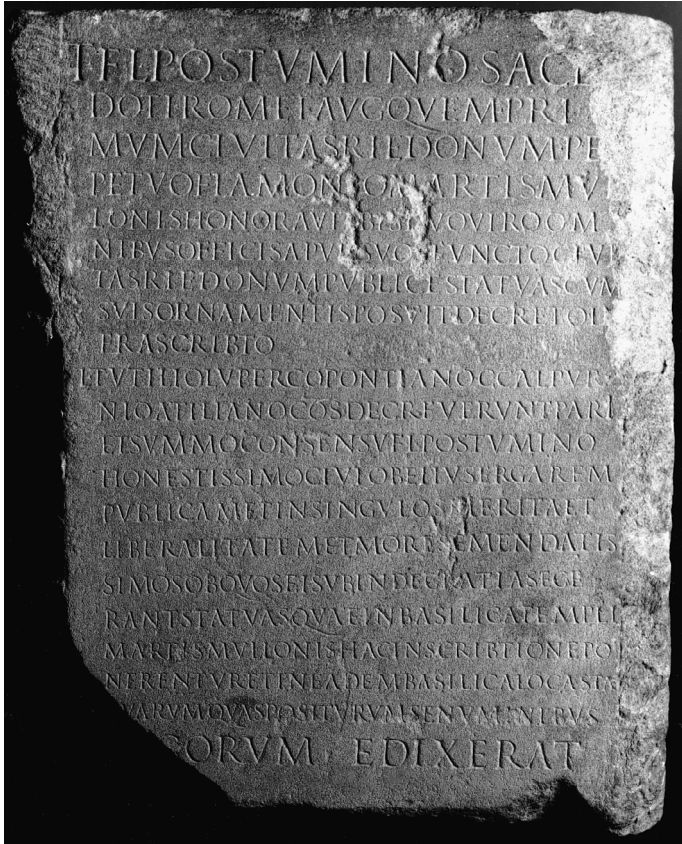 T FL POSTVMINO SACE
DOTI ROM ET AVG QVEM PRI
MVM CIVITAS RIEDONVM PE
PETVO FLAMONIO MARTIS MV
LONIS HONORAVIT BIS DVOVIRO OM
NIBVS OFFICIS APVD SVOS FVNCTO CIVI
TAS RIEDONVM PVBLICE STATVAS CVM
SVIS ORNAMENTIS POSVIT DECRETO I
FRA SCRIBTO
L TVTILIO LVPERCO PONTIANO C CALPVR
NIO ATILIANO COS DECREVERVNT PARI
ET SVMMO CONSENSV FL POSTVMINO
HONESTISSIMO CIVI OB EIIVS ERGA REM
PVBLICAM ET IN SINGVLOS MERITA ET
LIBERALITATEM ET MORES EMENDATIS
SIMOS OB QVOS EI SVBINDE GRATIAS EGE
RANT STATVAS QVAE IN BASILICA TEMPLI
MARTIS MVLLONIS HAC INSCRIBTIONE PO
NERENTVR ET IN EADEM BASILICA LOCA STA
VARVM QVAS POSITVRVM SE NVMINIBVS
GORVM EDIXERAT